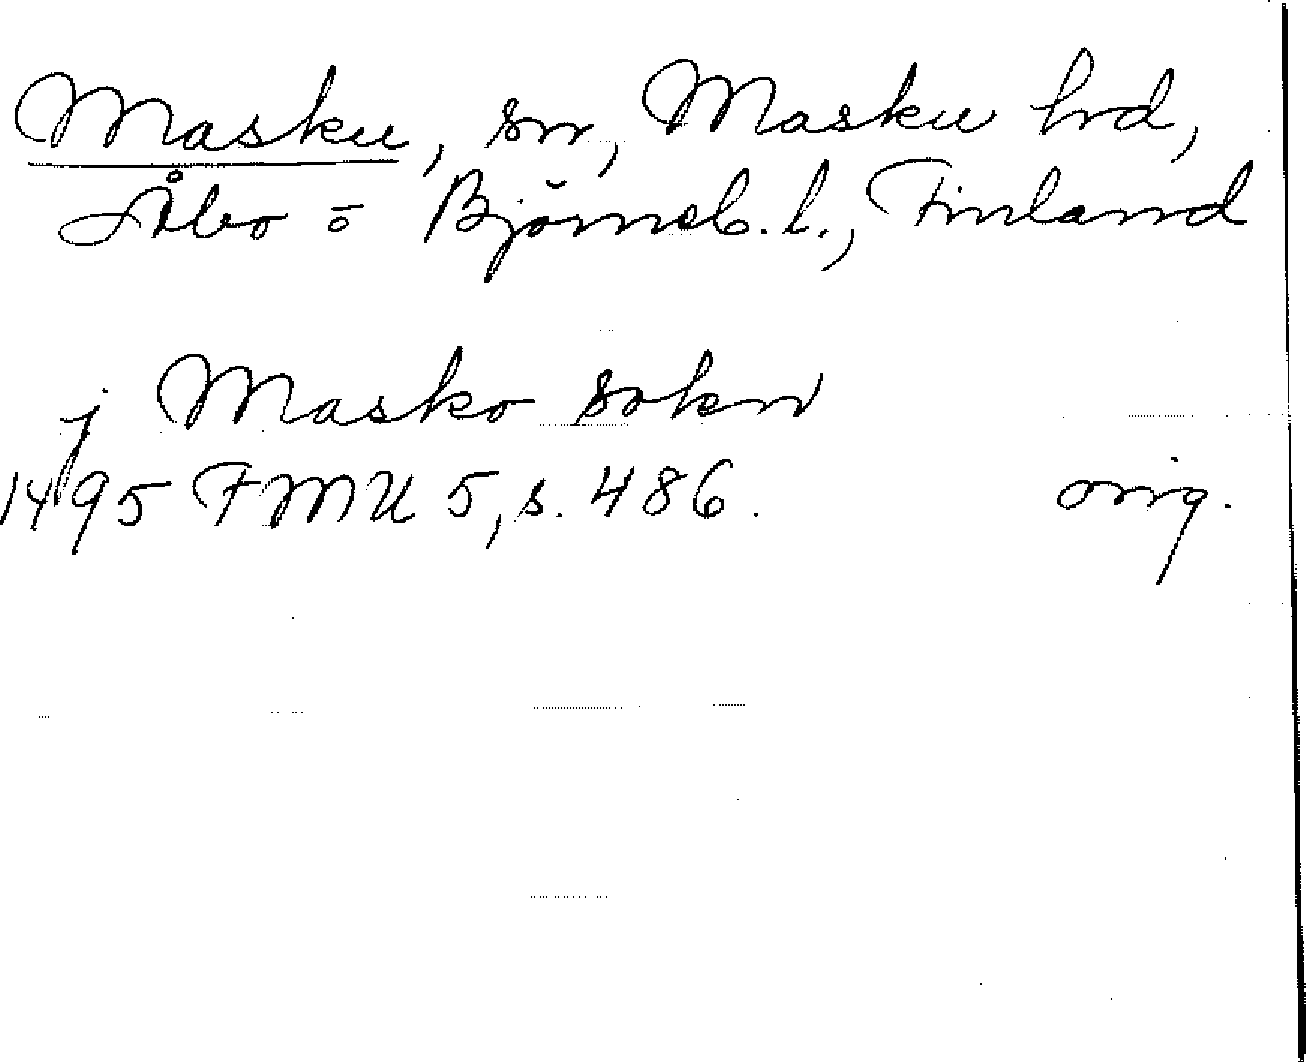 Masku, sn, Masku hrd,
Åbo o Björneb. l., Finland
j Masko sokn
1495 FMU 5, s. 486. orig.